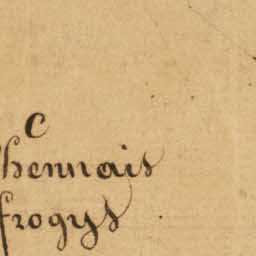 c
hennais
frogys